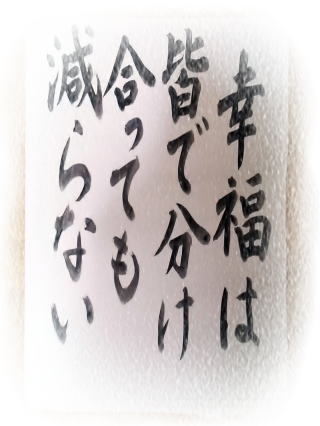 幸福は
皆で分け
合っても
減らない